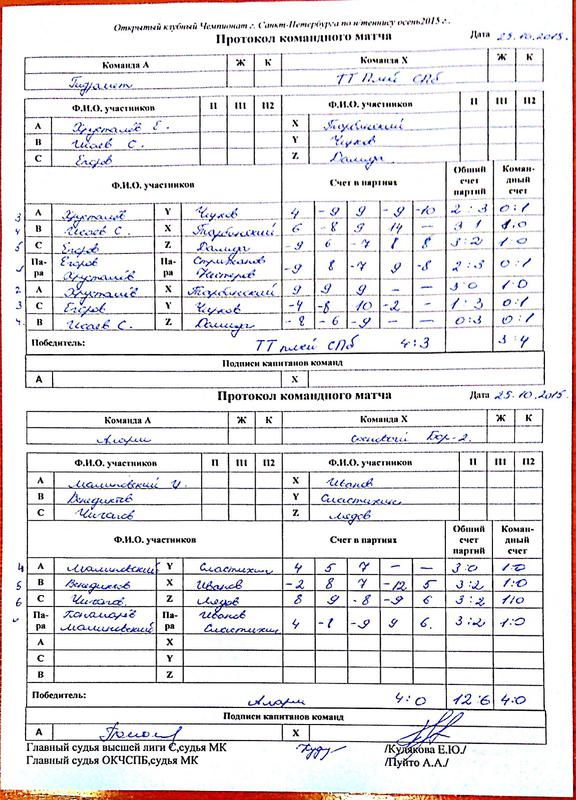 Открытый клубный Чемпионат г. Санкт-Петербурга по н/теннису осень2015 г..
Протокол командного матча Дата 25.10.2015.
Команда А Ж К Команда Х Ж К
ТТ Плей СПб
Ф.И.О. участников П П1 П2 Ф.И.О. участников П П1 П2
А Хрусталёв Е. X Торбинский
В Исаев С. Y Чуков
С Егоров Z
Ф.И.О. участников Счет в партиях Общий счет партий Командный счет
3 А Хрусталёв Y Чуков 4 -9 9 -9 -10 2:3 0:1
4 В Исаев С. X Торбинский 6 -8 9 14 — 3:1 1:0
5 С Егоров Z -9 6 -7 8 8 3:2 1:0
Па-ра Егоров Па-ра -9 8 -7 9 -8 2:3 0:1
Хрусталёв Нестеров
2 А Хрусталёв X Торбинский 9 9 9 — — 3:0 1:0
3 С Егоров Y Чуков -4 -8 10 -2 — 1:3 0:1
4 В Исаев С. Z -8 -6 -9 — — 0:3 0:1
Победитель: ТТ плей СПб 4:3 3:4
Подписи капитанов команд
А X
Протокол командного матча Дата 25.10.2015.
Команда А Ж К Команда Х Ж К
Сосновый Бор-2.
Ф.И.О. участников П П1 П2 Ф.И.О. участников П П1 П2
А Малиновский И. X Иванов
В Венедиктов Y Сластихин
С Чигаев Z Лядов
Ф.И.О. участников Счет в партиях Общий счет партий Командный счет
4 А Малиновский Y Сластихин 4 5 7 — — 3:0 1:0
5 В Венедиктов X Иванов -2 8 7 -12 5 3:2 1:0
6 С Чигаев. Z Лядов 8 9 -8 -9 6 3:2 1:0
Па-ра Пономарёв Па-ра Иванов 4 -8 -9 9 6. 3:2 1:0
Малиновский Сластихин
А X
С Y
В Z
Победитель: 4:0 12:6 4:0
Подписи капитанов команд
А X
Главный судья высшей лиги С,судья МК /Кулякова Е.Ю./
Главный судья ОКЧСПБ,судья МК /Пуйто А.А./